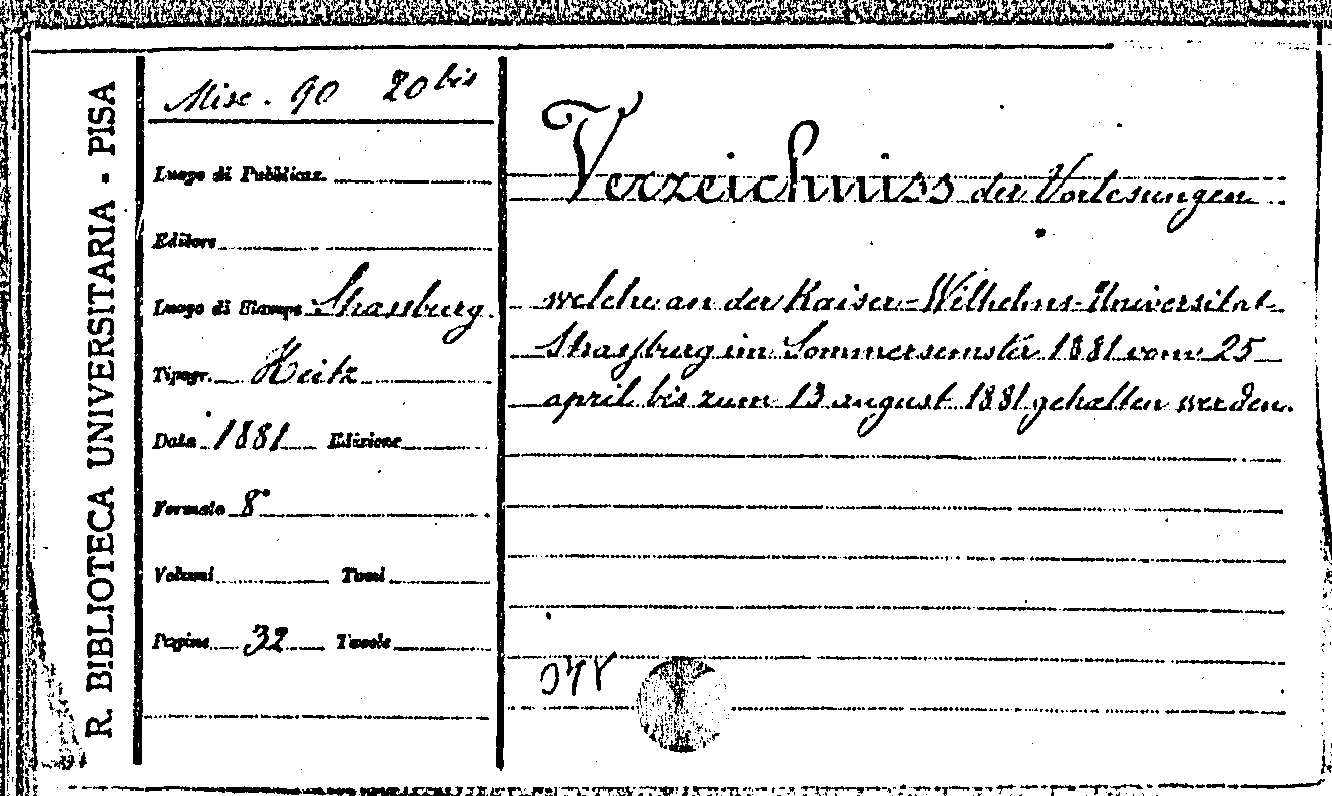 R. BIBLIOTECA UNIVERSITARIA - PISA
Misc. 90 20 bis
Luogo di Pubblicaz.
Editore
Luogo di Stampa Strassburg.
Tipogr. Heitz
Data 1881 Edizione
Formato 8°
Volumi Tomi
Pagine 32 Tavole
Verzeichniss der Vorlesungen
welche an der Kaiser-Wilhelms-Universität
Strassburg im Sommersemster 1881 vom 25
april bis zum 13 august 1881 gehalten werden.